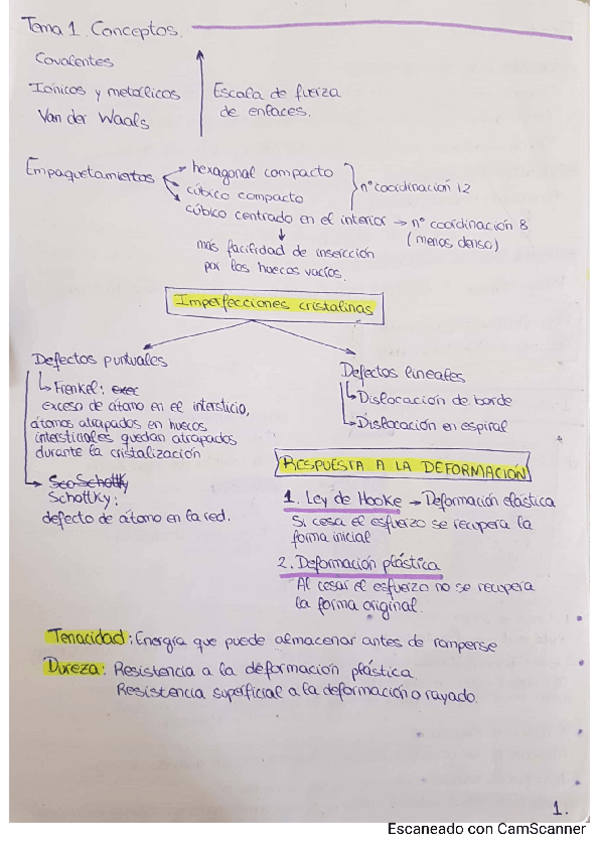 Tema 1. Conceptos.
Covalentes
Iónicos y metálicos
Van der Waals
Escala de fuerza
de enlaces.
Empaquetamientos
hexagonal compacto
cúbico compacto
nº coordinación 12
cúbico centrado en el interior → nº coordinación 8
(menos denso)
más facilidad de inserción
por los huecos vacíos.
Imperfecciones cristalinas
Defectos puntuales
Frenkel: exec
exceso de átomo en el intersticio,
átomos atrapados en huecos
intersticiales quedan atrapados
durante la cristalización
Sco Schottky
Schottky:
defecto de átomo en la red.
Defectos lineales
Dislocación de borde
Dislocación en espiral
RESPUESTA A LA DEFORMACIÓN
1. Ley de Hooke → Deformación elástica
Si cesa el esfuerzo se recupera la
forma inicial
2. Deformación plástica
Al cesar el esfuerzo no se recupera
la forma original.
Tenacidad: Energía que puede almacenar antes de romperse
Dureza: Resistencia a la deformación plástica.
Resistencia superficial a la deformación o rayado.
1.
Escaneado con CamScanner